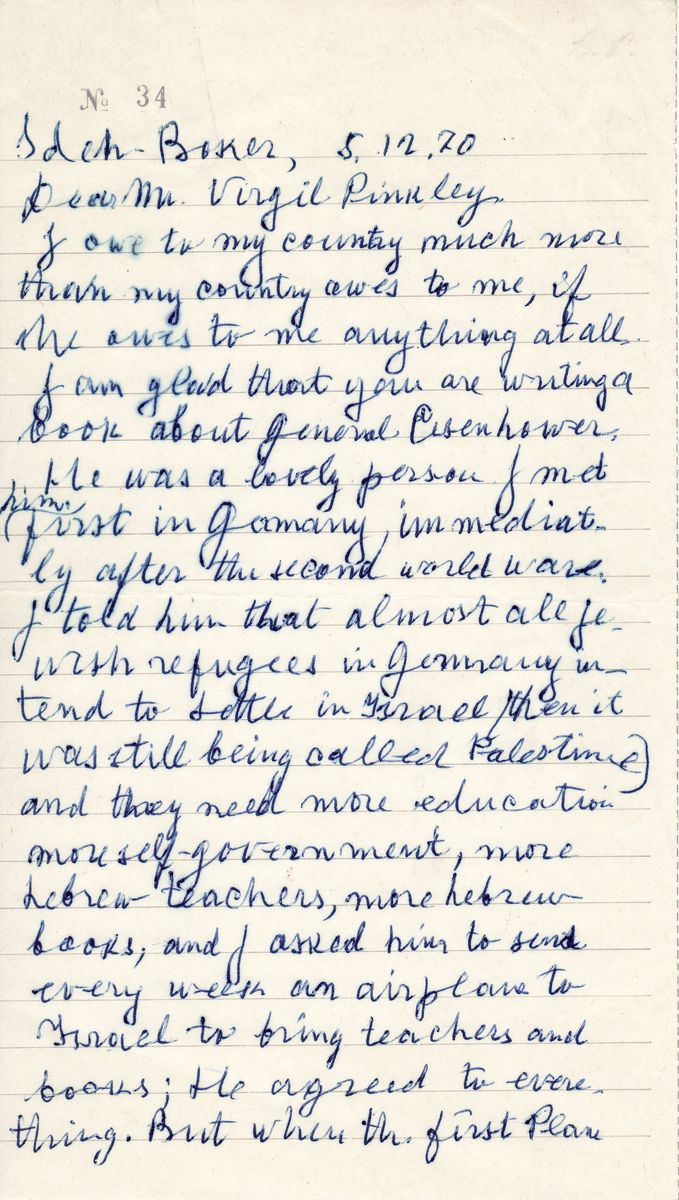 № 34
Sdeh-Boker, 5.12.70
Dear Mr. Virgil Pinkley.
I owe to my country much more
than my country owes to me, if
she owes to me anything at all.
I am glad that you are writing a
book about General Eisenhower.
He was a lovely person I met
him.
(first in Gemany, immediat-
ly after the second world ware.
I told him that almost all Je-
wish refugees in Germany in-
tend to settle in Israel (then it
was still being called Palestine)
and they need more education
more self-government, more
hebrew teachers, more hebrew
books; and I asked him to send
every week an airplane to
Israel to bring teachers and
books; He agreed to every-
thing. But when the first Plane